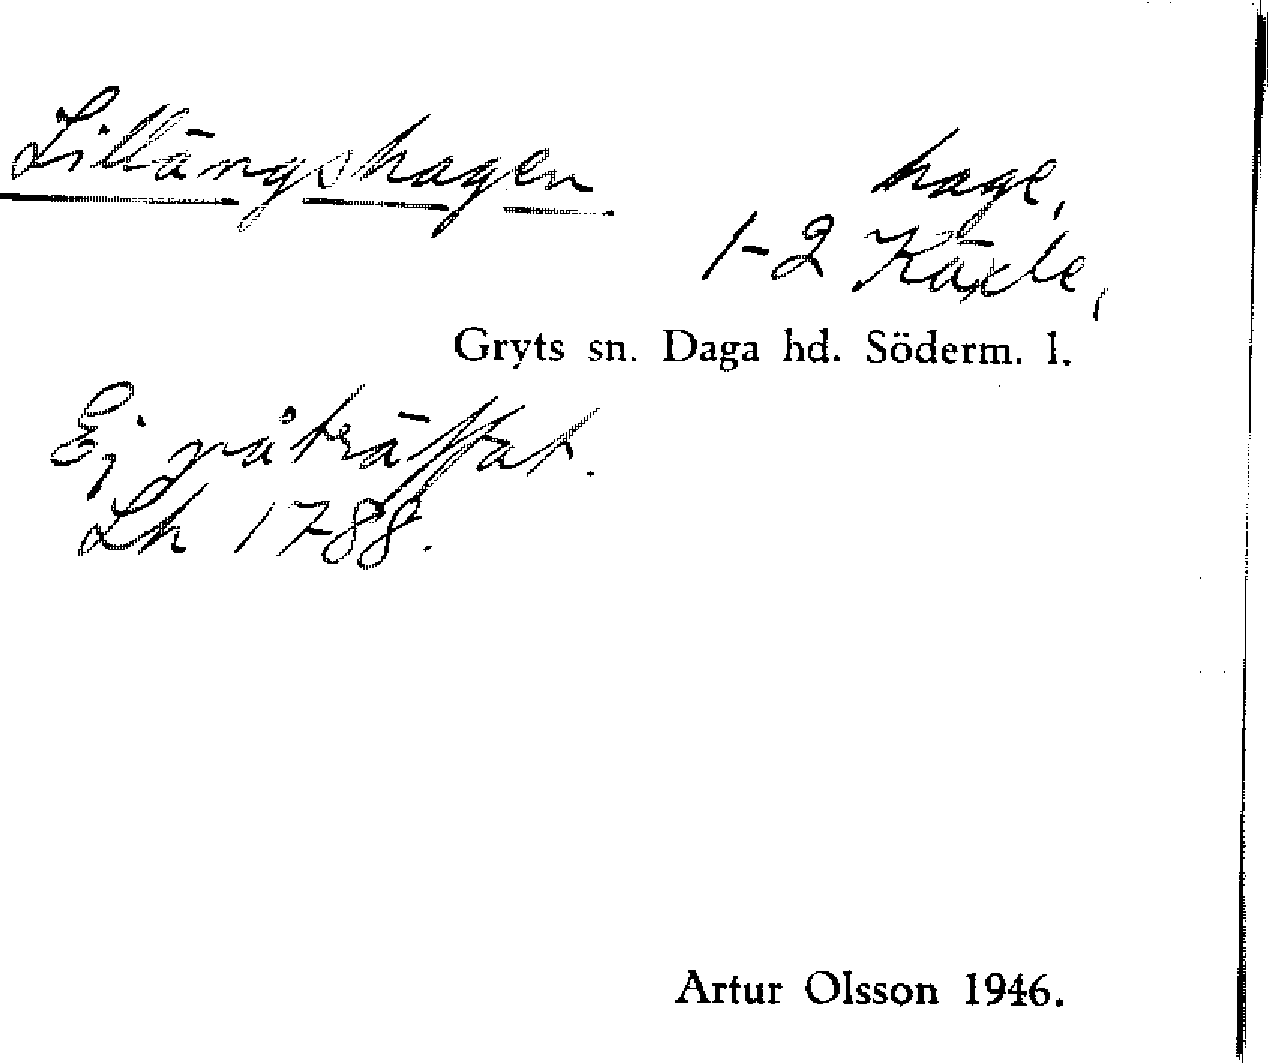 Lillängshagen
hage,
1-2 Käxle,
Gryts sn. Daga hd. Söderm. l.
Ej påträffat.
Lh 1788.
Artur Olsson 1946.